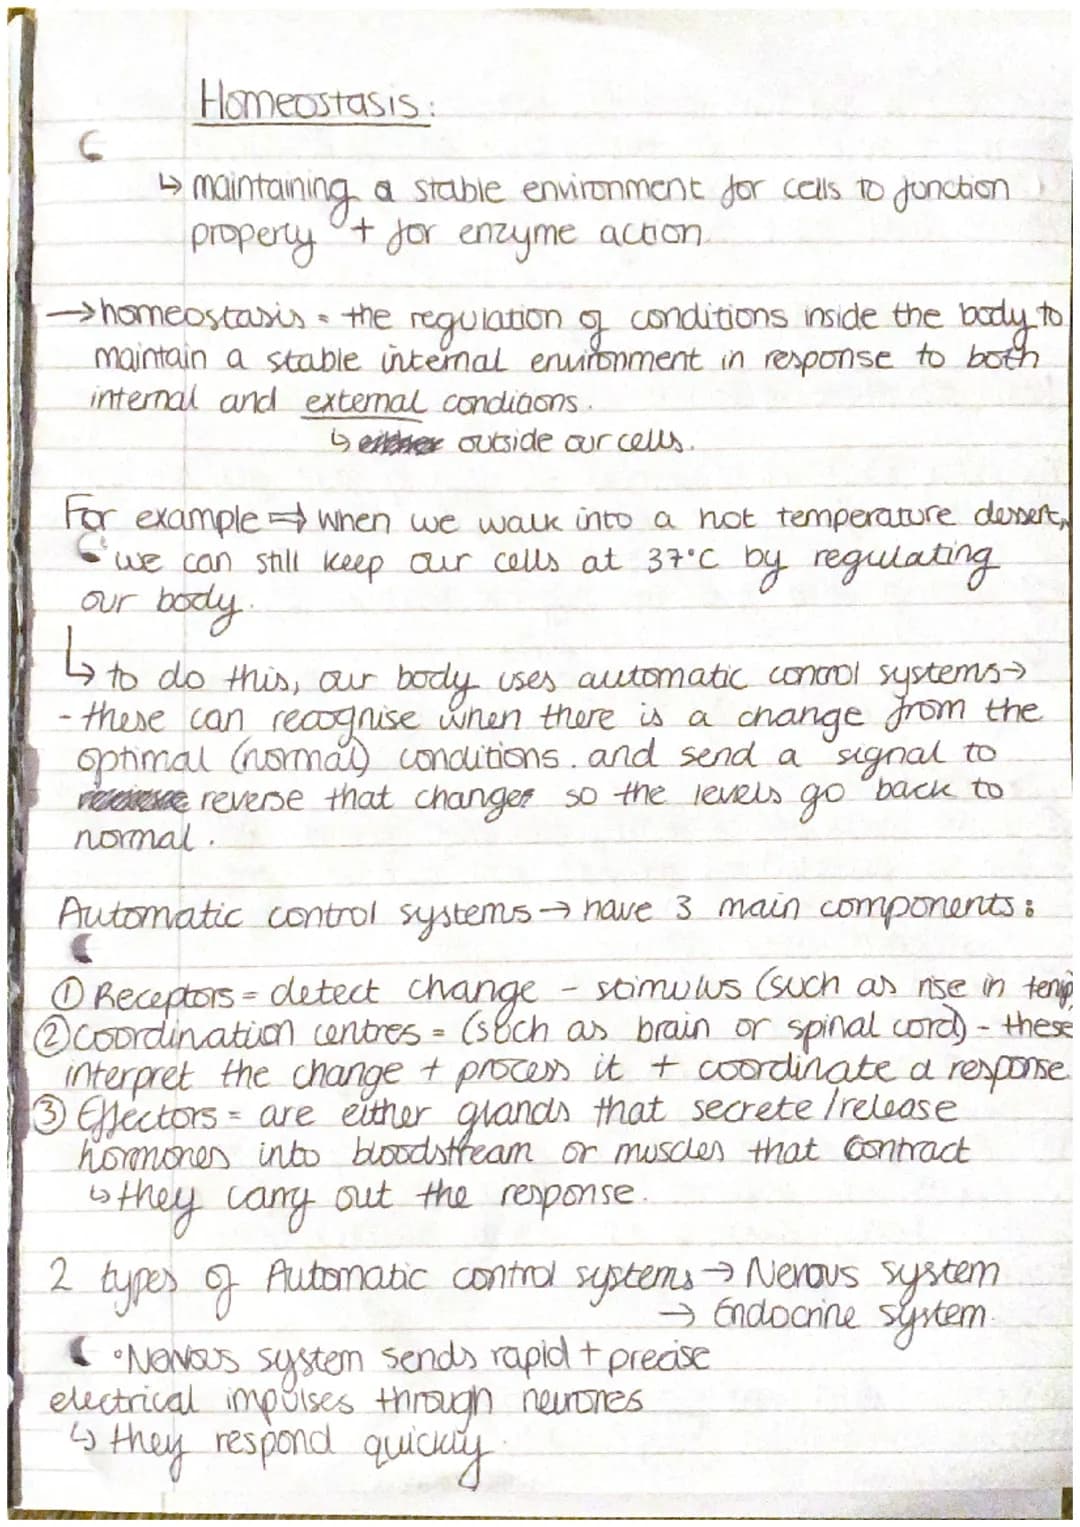 Homeostasis:
↳ maintaining a stable environment for cells to function
properly + for enzyme action
→ homeostasis = the regulation of conditions inside the body to
maintain a stable internal environment in response to both
internal and external conditions.
↳ outside our cells.
For example ⇒ when we walk into a hot temperature dessert,
we can still keep our cells at 37°C by regulating
our body.
↳ to do this, our body uses automatic control systems →
- these can recognise when there is a change from the
optimal (normal) conditions. and send a signal to
reverse that change so the levels go back to
normal.
Automatic control systems → have 3 main components:
① Receptors = detect change - stimulus (such as rise in temp)
② Coordination centres = (such as brain or spinal cord) - these
interpret the change + process it + coordinate a response
③ Effectors = are either glands that secrete/release
hormones into bloodstream or muscles that contract
↳ they carry out the response.
2 types of Automatic control systems → Nervous system
→ Endocrine system.
• Nervous system sends rapid + precise
electrical impulses through neurones
↳ they respond quickly.